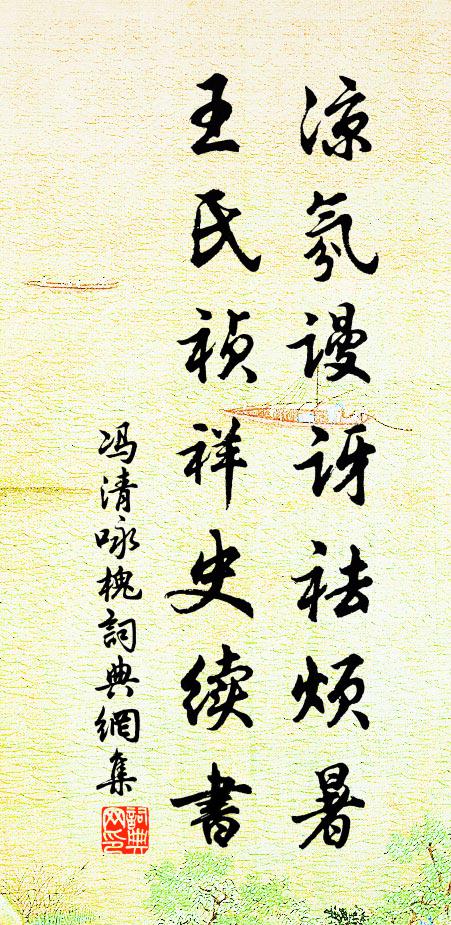 凉氛谩讶祛烦暑
王氏祯祥史续书
冯清咏槐詞典網集
詞典网印